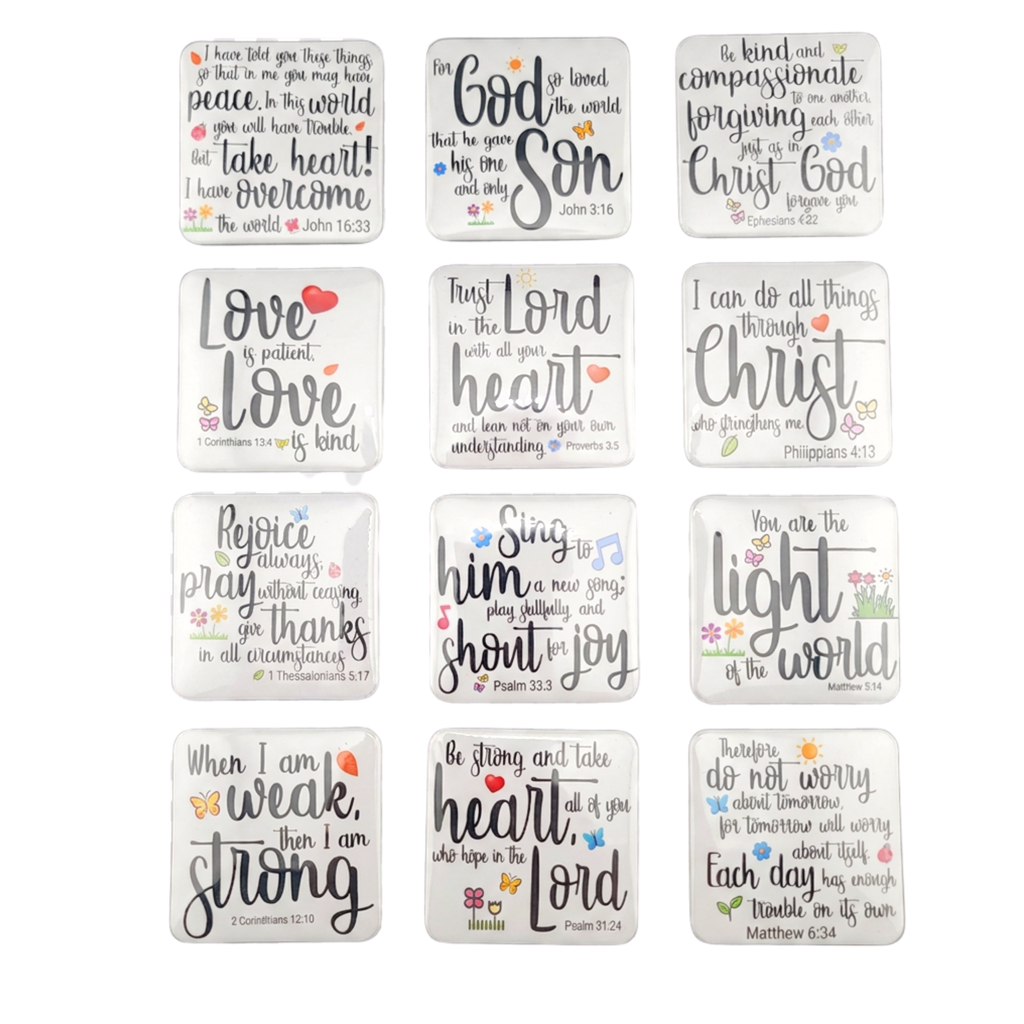 I have told you these things,
so that in me you may have
peace. In this world
you will have trouble.
But take heart!
I have overcome
the world John 16:33
For God so loved
the world
that he gave
his one
and only Son
John 3:16
Be kind and
compassionate
to one another,
forgiving each other
just as in
Christ God
forgave you
Ephesians 4:22
Love
is patient.
Love
1 Corinthians 13.4 is kind
Trust
in the Lord
with all your
heart
and lean not on your own
understanding. Proverbs 3.5
I can do all things
through
Christ
who stringthens me
Phiiippians 4:13
Rejoice
always,
pray without ceaying
give thanks
in all circumstances
1 Thessalonians 5:17
Sing to
him a new song;
play skillfully, and
shout for joy
Psalm 33.3
You are the
light
of the world
Matthew 5:14
When I am
weak,
then I am
strong
2 Corinthians 12:10
Be strong and take
heart, all of you
who hope in the
Lord
Pealm 31:24
Therefore
do not worry
about tomorrow,
for tomorrow will worry
about itself.
Each day has enough
trouble on its own
Matthew 6:34